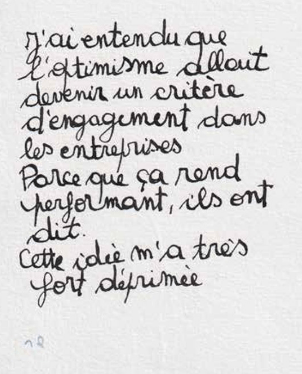 J'ai entendu que
l'optimisme allait
devenir un critère
d'engagement dans
les entreprises
Parce que ça rend
performant, ils ont
dit.
Cette idée m'a très
fort déprimée